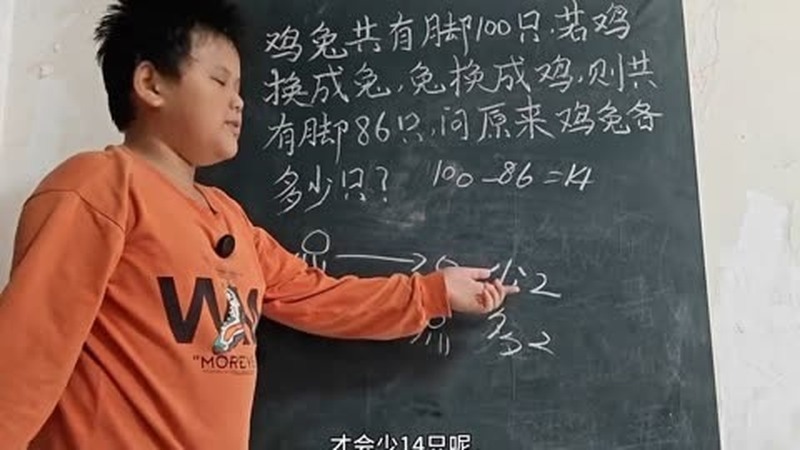 鸡兔共有脚100只,若鸡
换成兔,兔换成鸡,则共
有脚86只,问原来鸡兔各
多少只? 100-86=14
少2
多2
"MOREYE
才会少14只呢